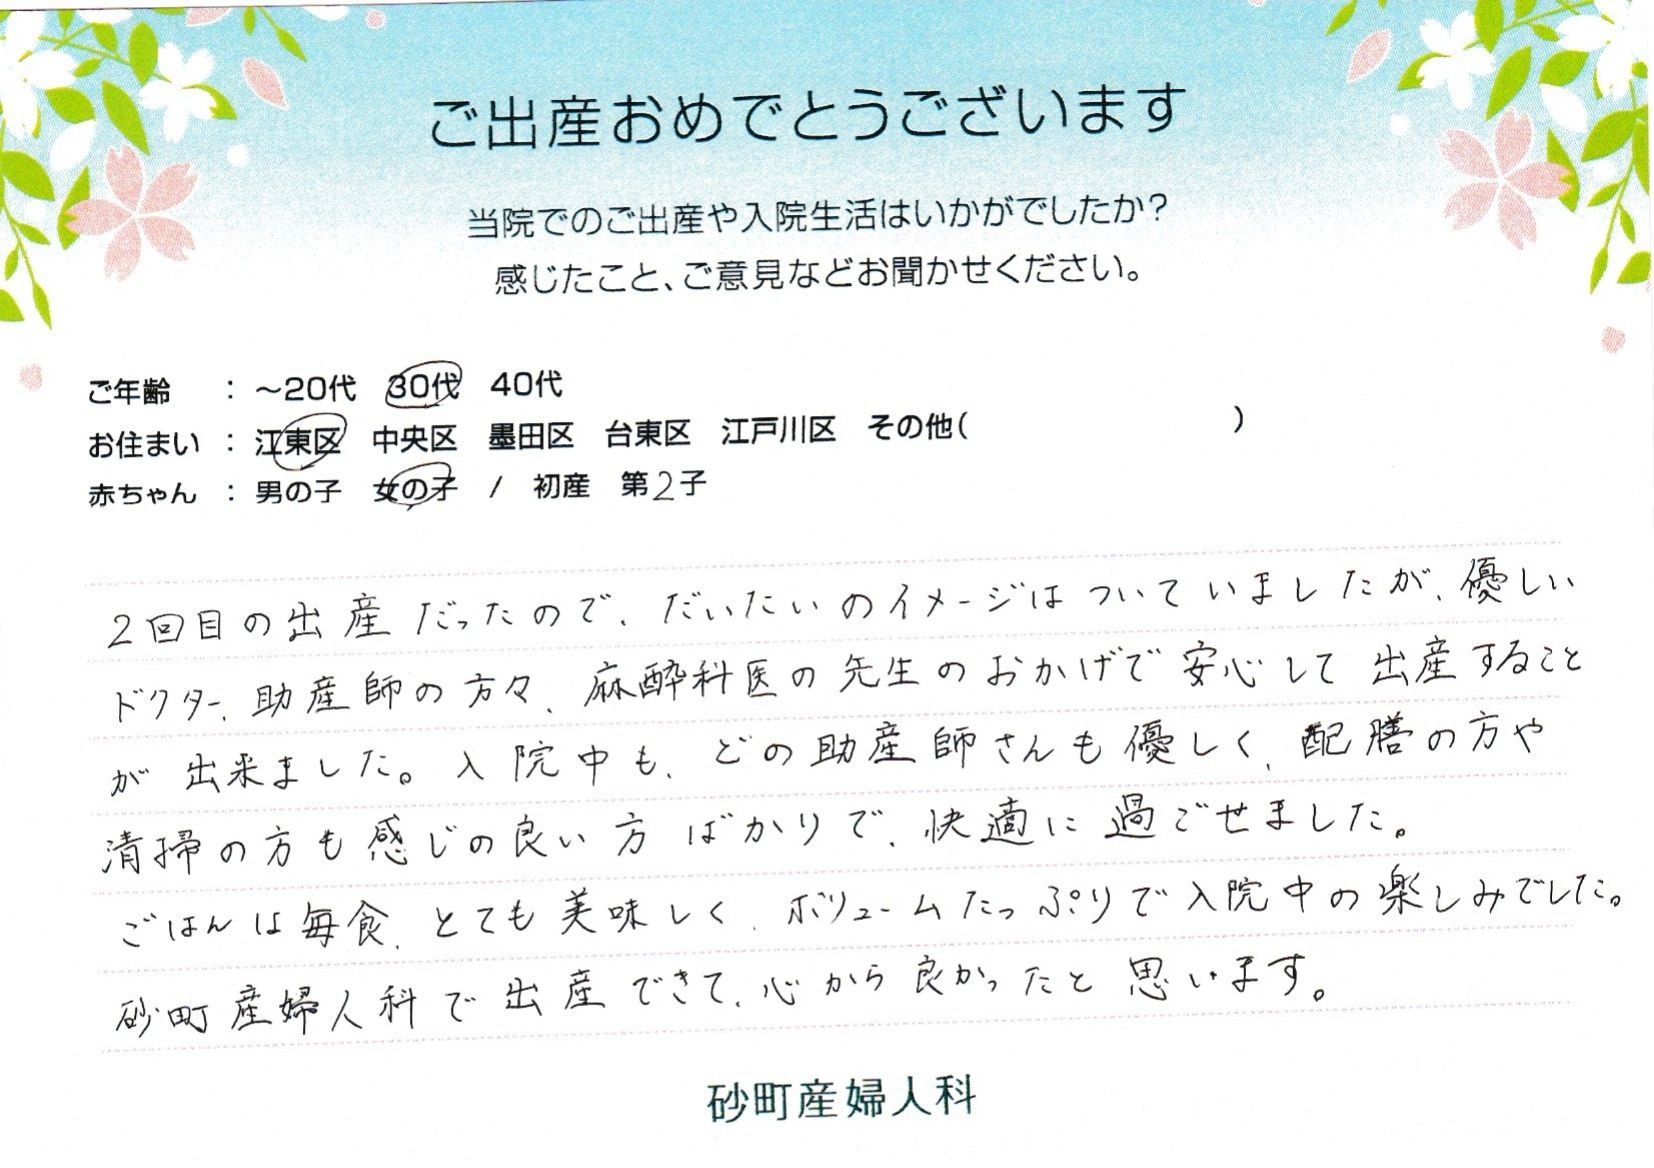 ご出産おめでとうございます
当院でのご出産や入院生活はいかがでしたか?
感じたこと、ご意見などお聞かせください。
ご年齢 : ～20代 30代 40代
お住まい : 江東区 中央区 墨田区 台東区 江戸川区 その他( )
赤ちゃん : 男の子 女の子 / 初産 第2子
2回目の出産だったので、だいたいのイメージはついていましたが、優しい
ドクター、助産師の方々、麻酔科医の先生のおかげで安心して出産すること
が出来ました。入院中も、どの助産師さんも優しく、配膳の方や
清掃の方も感じの良い方ばかりで、快適に過ごせました。
ごはんは毎食、とても美味しく、ボリュームたっぷりで入院中の楽しみでした。
砂町産婦人科で出産できて、心から良かったと思います。
砂町産婦人科